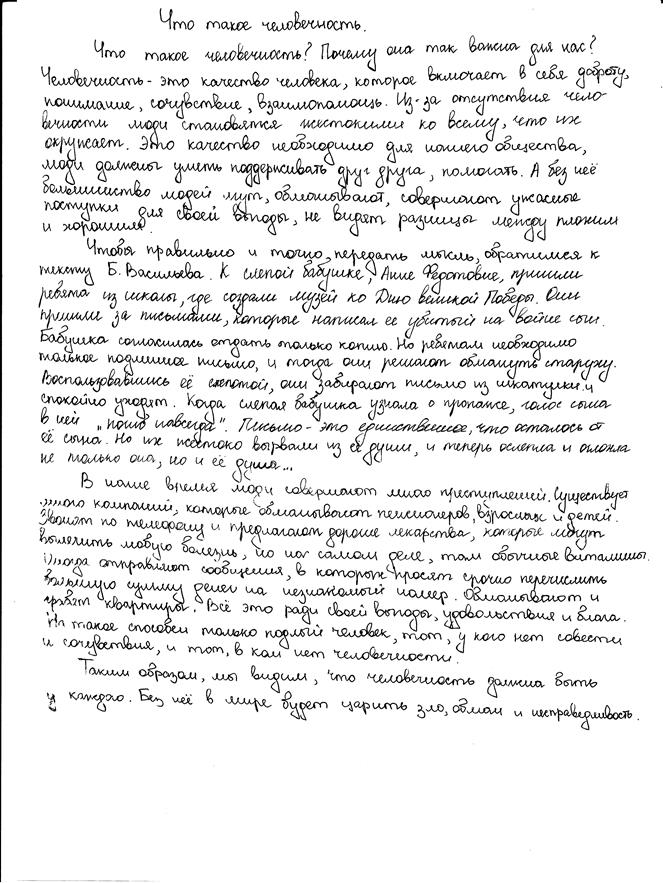 Что такое человечность.
Что такое человечность? Почему она так важна для нас?
Человечность - это качество человека, которое включает в себя доброту,
понимание, сочувствие, взаимопомощь. Из-за отсутствия чело-
вечности люди становятся жестокими ко всему, что их
окружает. Это качество необходимо для нашего общества,
люди должны уметь поддерживать друг друга, помогать. А без неё
большинство людей лгут, обманывают, совершают ужасные
поступки для своей выгоды, не видят разницы между плохим
и хорошим.
Чтобы правильно и точно, передать мысль, обратимся к
тексту Б. Васильева. К слепой бабушке, Анне Федотовне, пришли
ребята из школы, где создали музей ко Дню великой Победы. Они
пришли за письмами, которые написал ее убитый на войне сын.
Бабушка согласилась отдать только копию. Но ребятам необходимо
только подлинное письмо, и тогда они решают обмануть старуху.
Воспользовавшись её слепотой, они забирают письмо из шкатулки и
спокойно уходят. Когда слепая бабушка узнала о пропаже, голос сына
в ней „погиб навсегда". Письмо - это единственное, что осталось от
её сына. Но их жестоко вырвали из её души, и теперь ослепла и оглохла
не только она, но и её душа...
В наше время люди совершают много преступлений. Существует
много компаний, которые обманывают пенсионеров, взрослых и детей.
Звонят по телефону и предлагают дорогие лекарства, которые могут
вылечить любую болезнь, но на самом деле, там обычные витамины.
Иногда отправляют сообщения, в которых просят срочно перечислить
большую сумму денег на незнакомый номер. Обманывают и
грабят квартиры. Всё это ради своей выгоды, удовольствия и блага.
На такое способен только подлый человек, тот, у кого нет совести
и сочувствия, и тот, в ком нет человечности.
Таким образом, мы видим, что человечность должна быть
у каждого. Без неё в мире будет царить зло, обман и несправедливость.